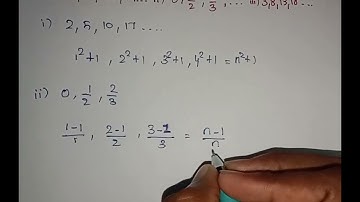 0, 1/2, 2/3, ... iii) 3,8,13,18 ...
i) 2, 5, 10, 17 ....
1²+1, 2²+1, 3²+1, 4²+1 = n²+1
ii) 0, 1/2, 2/3
1-1/1, 2-1/2, 3-1/3 = n-1/n